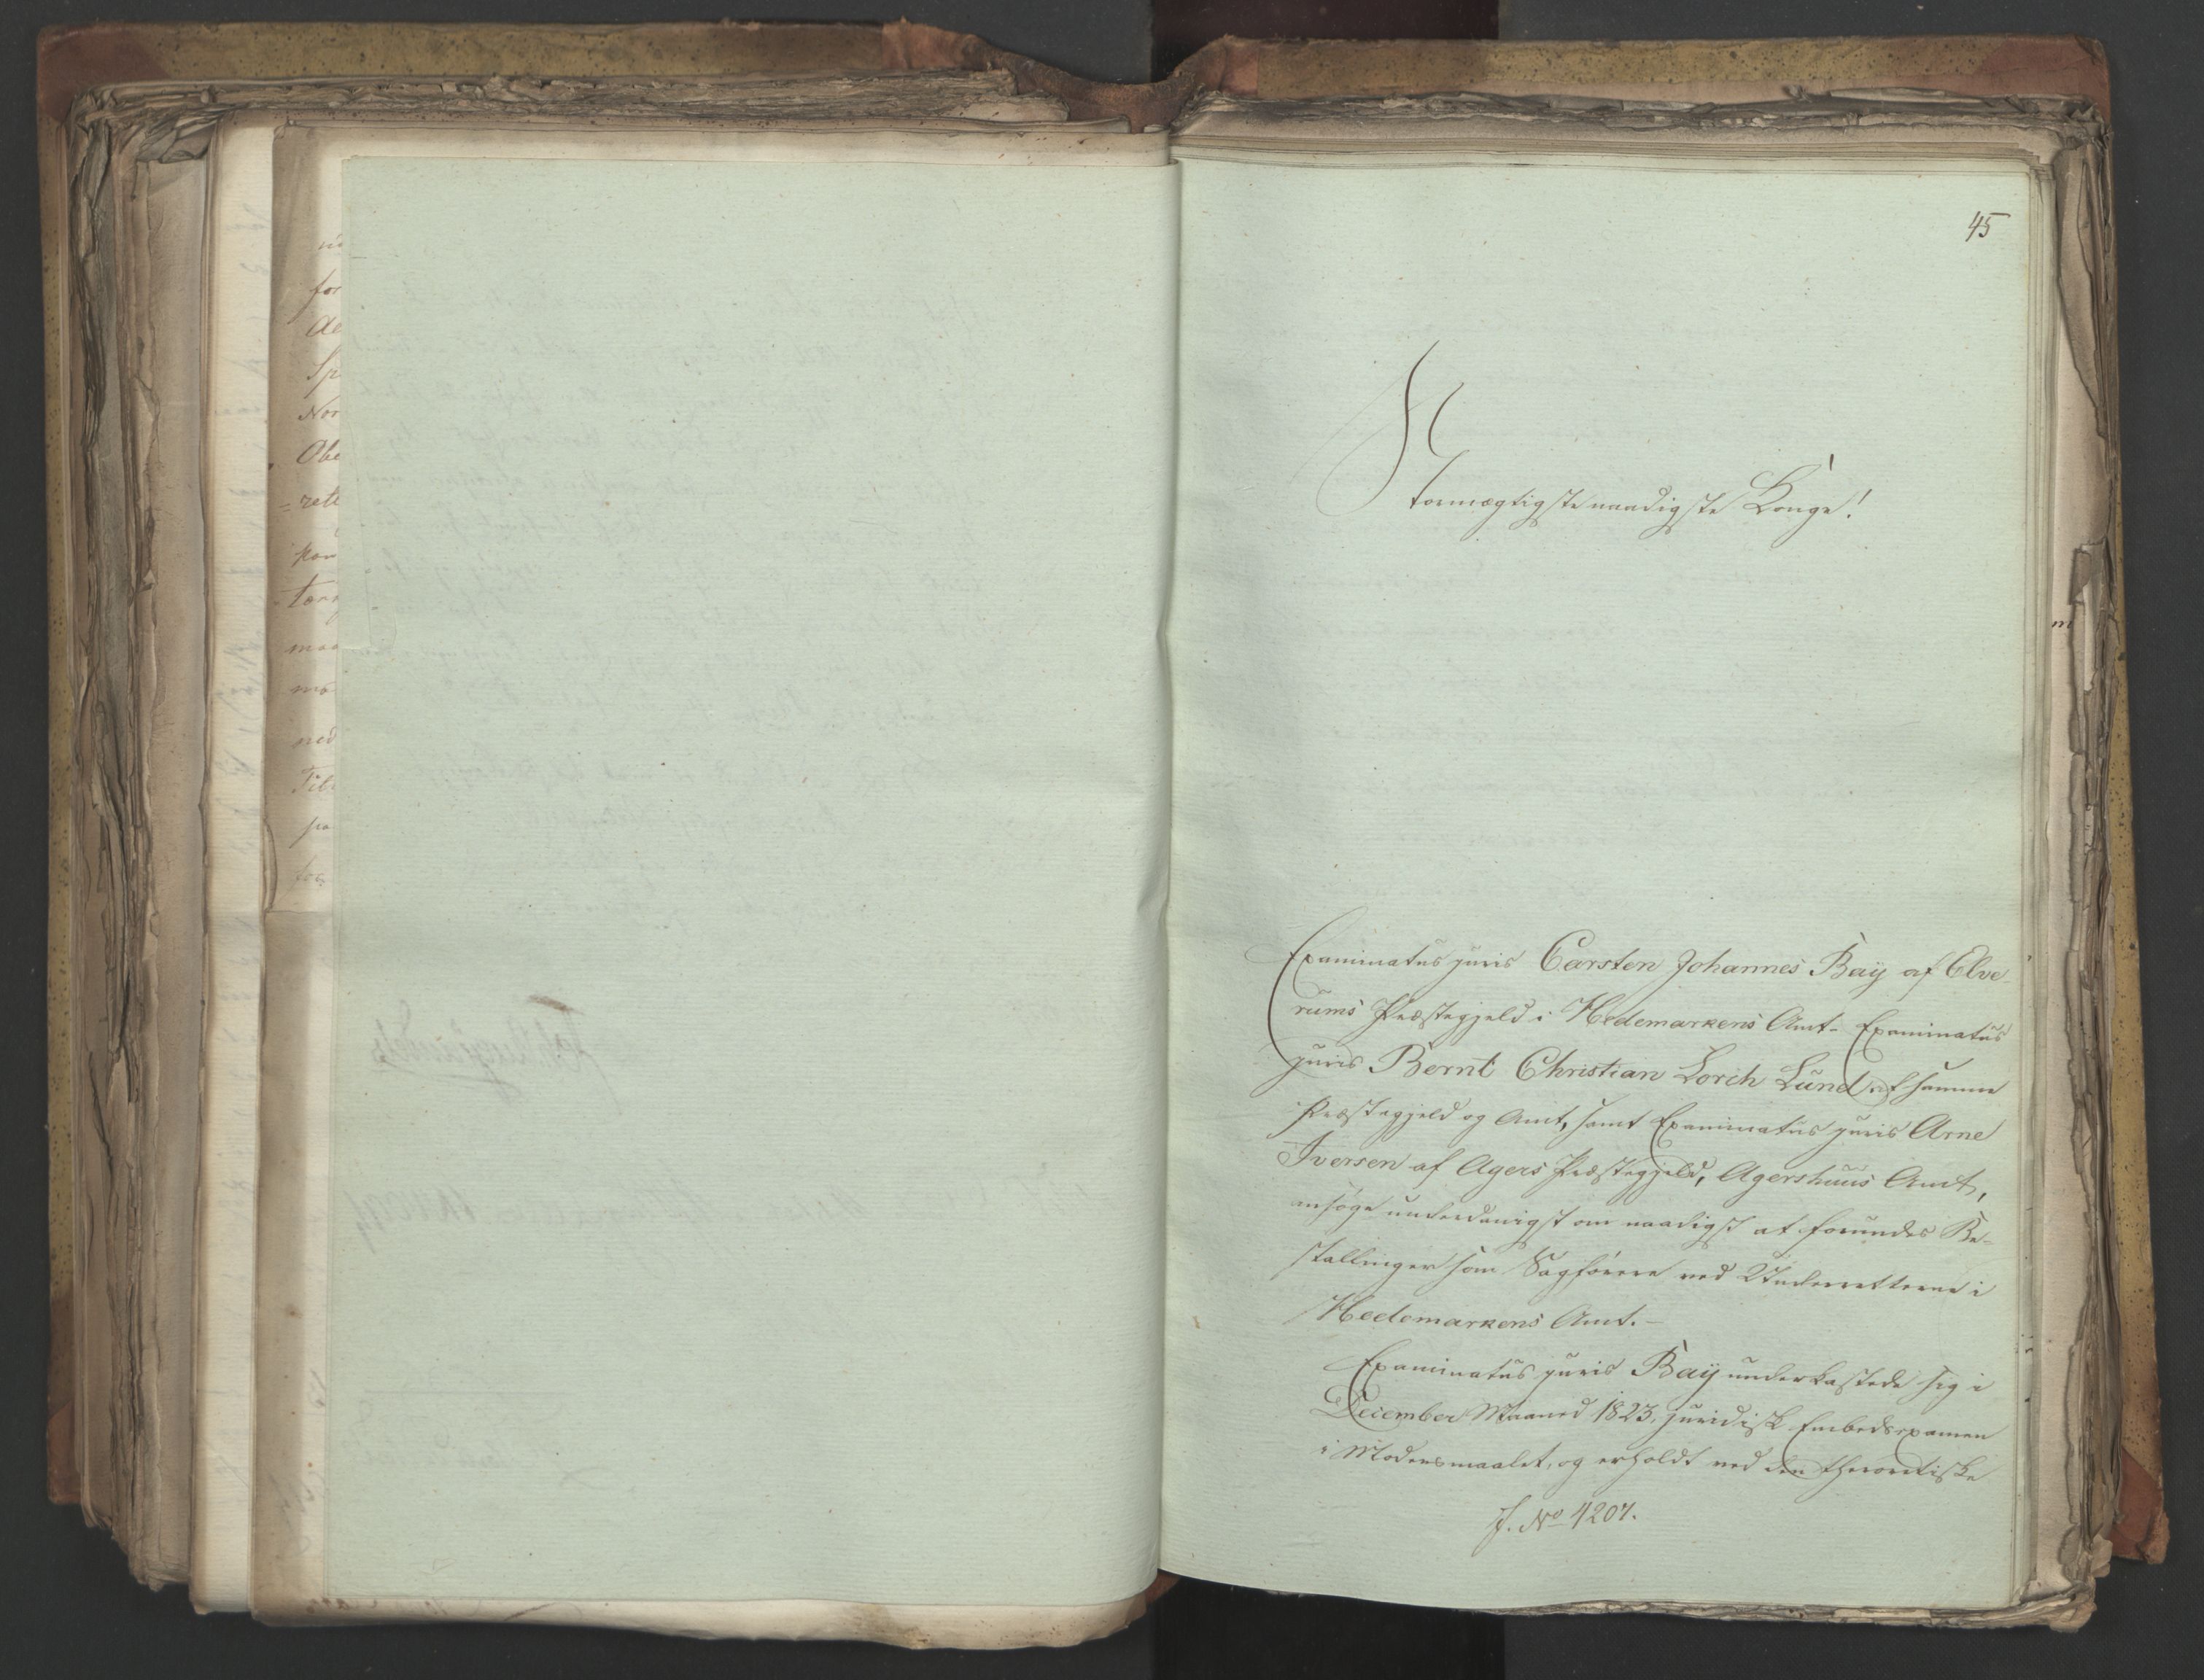 45
Stormægtigste naadigste Konge!
Examinatus juris Carsten Johannes Baÿ af Elve-
rums Præstegjeld i Hedemarkens Amt- Examinatus
juris Bernt Christian Lorch Lund af samme
Præstegjeld og Amt, samt Examinatus juris Arne
Iversen af Agers Præstegjeld, Agershuus Amt,
ansøge underdanigst om naadigst at forundes Be-
stallinger som Sagførere ved Underretterne i
Hedemarkens Amt.-
Examinatus juris Baÿ underkastede sig i
December Maaned 1823, juridisk Embedsexamen
i Modersmaalet, og erholdt ved den theoretiske
J. No 4207.
for
Sp
Nor
Obe
= rett
kon
maa
ned